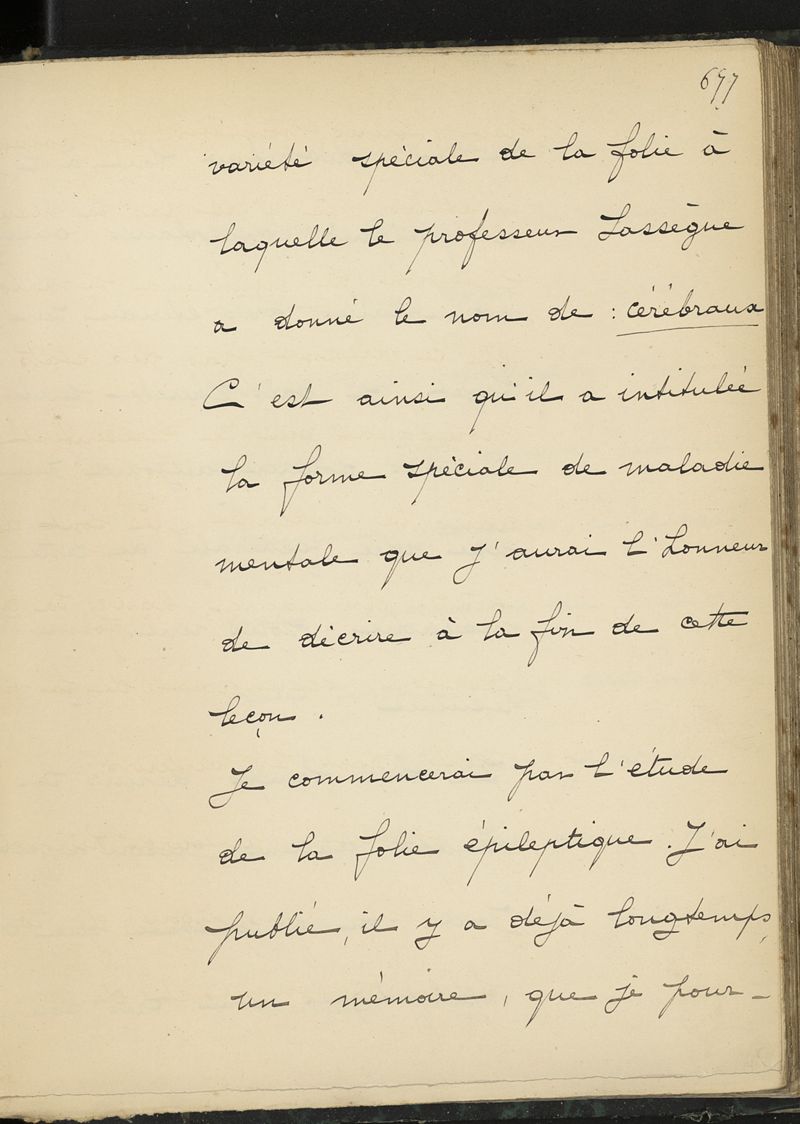 677
variété spéciale de la folie à
laquelle le professeur Lassègue
a donné le nom de : cérébraux
C'est ainsi qu'il a intitulée
la forme spéciale de maladie
mentale que j'aurai l'honneur
de décrire à la fin de cette
leçon.
Je commencerai par l'étude
de la folie épileptique. J'ai
publié, il y a déjà longtemps,
un mémoire, que je pour-